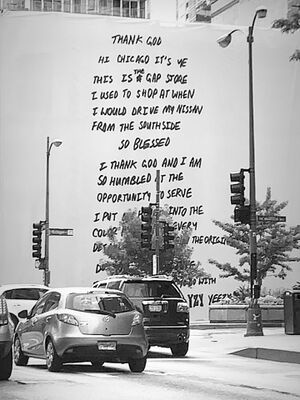 THANK GOD
HI CHICAGO IT'S YE
THIS IS THE GAP STORE
I USED TO SHOP AT WHEN
I WOULD DRIVE MY NISSAN
FROM THE SOUTHSIDE
SO BLESSED
I THANK GOD AND I AM
SO HUMBLED AT THE
OPPORTUNITY TO SERVE
I PUT INTO THE
COLOR EVERY
THE ORIGIN
WITH
YZY YEEZY